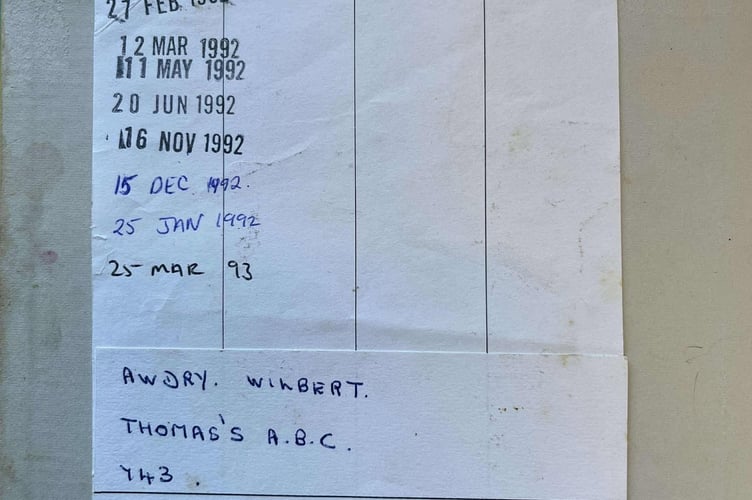 27 FEB 1992
12 MAR 1992
11 MAY 1992
20 JUN 1992
16 NOV 1992
15 DEC 1992.
25 JAN 1992
25 MAR 93
AWDRY. WILBERT.
THOMAS'S A.B.C.
Y43.